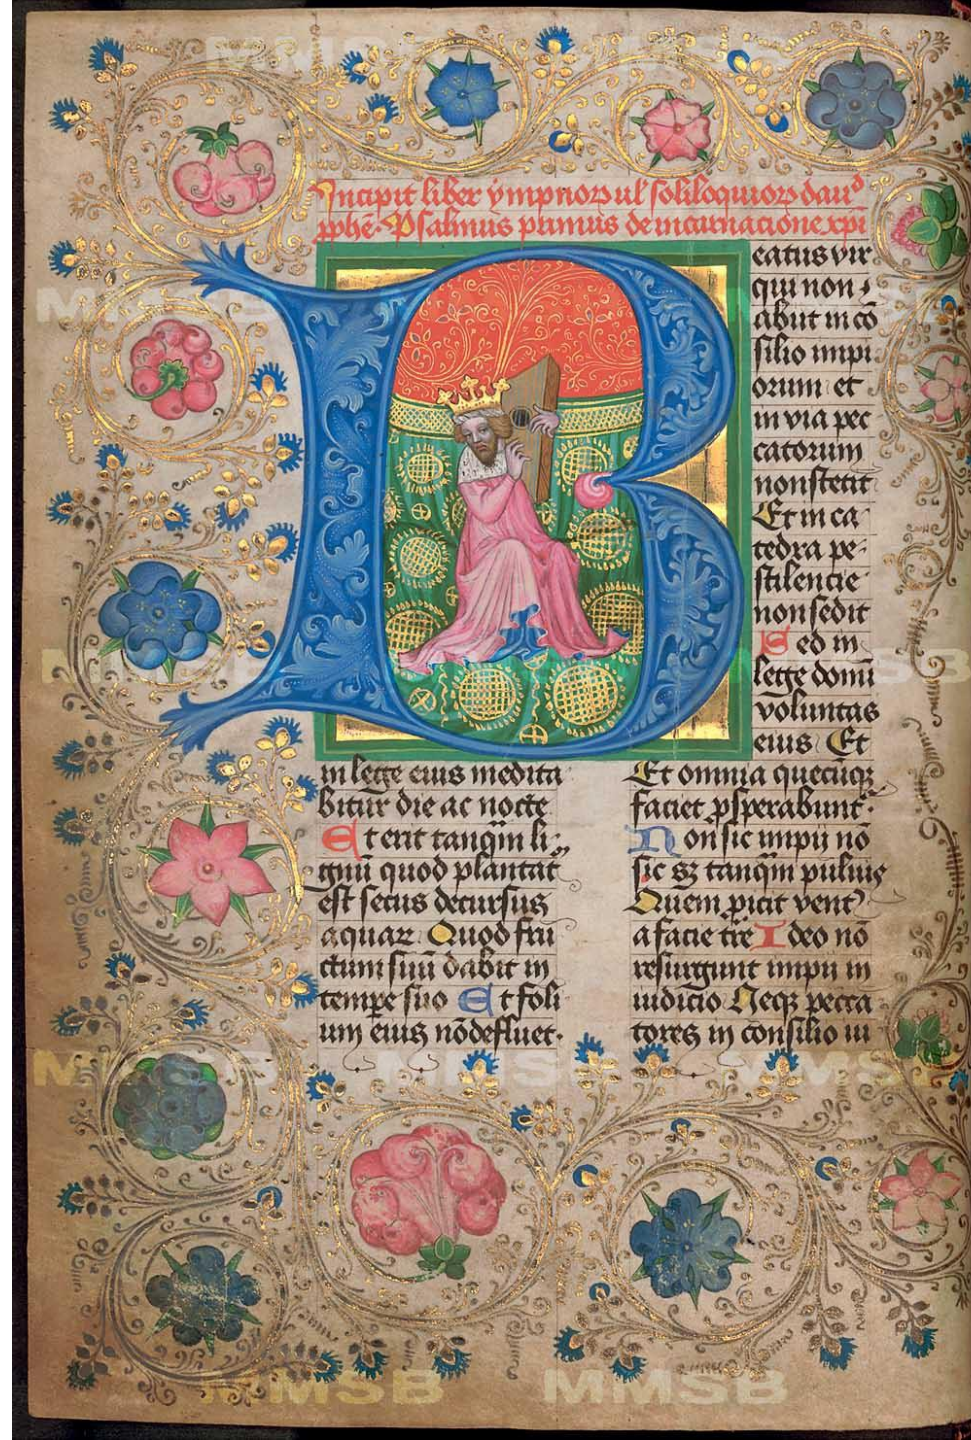 Incipit liber ympnoꝝ ul' soliloquioꝝ dauid
pphē. Psalmus primus de incarnacione xpi
Beatus vir
qui non
abiit in cō
silio impi
orum et
in via pec
catorum
non stetit
Et in ca
tedra pe
stilencie
non sedit
Sed in
lege domī
voluntas
eius Et
in lege eius medita
bitur die ac nocte
Et erit tanqm̄ li
gnū quod plantat̄
est secus decursus
aquaꝝ Quod fru
ctum suū dabit in
tempe suo Et foli
um eius nō defluet.
Et omnia quecūqꝫ
faciet ꝓsperabunt̄.
Non sic impii nō
sic sꝫ tanqm̄ puluis
Quem ꝓicit vent᾽
a facie tre Ideo nō
resurgunt impii in
iudicio Neqꝫ pecca
tores in consilio iu
MMSB